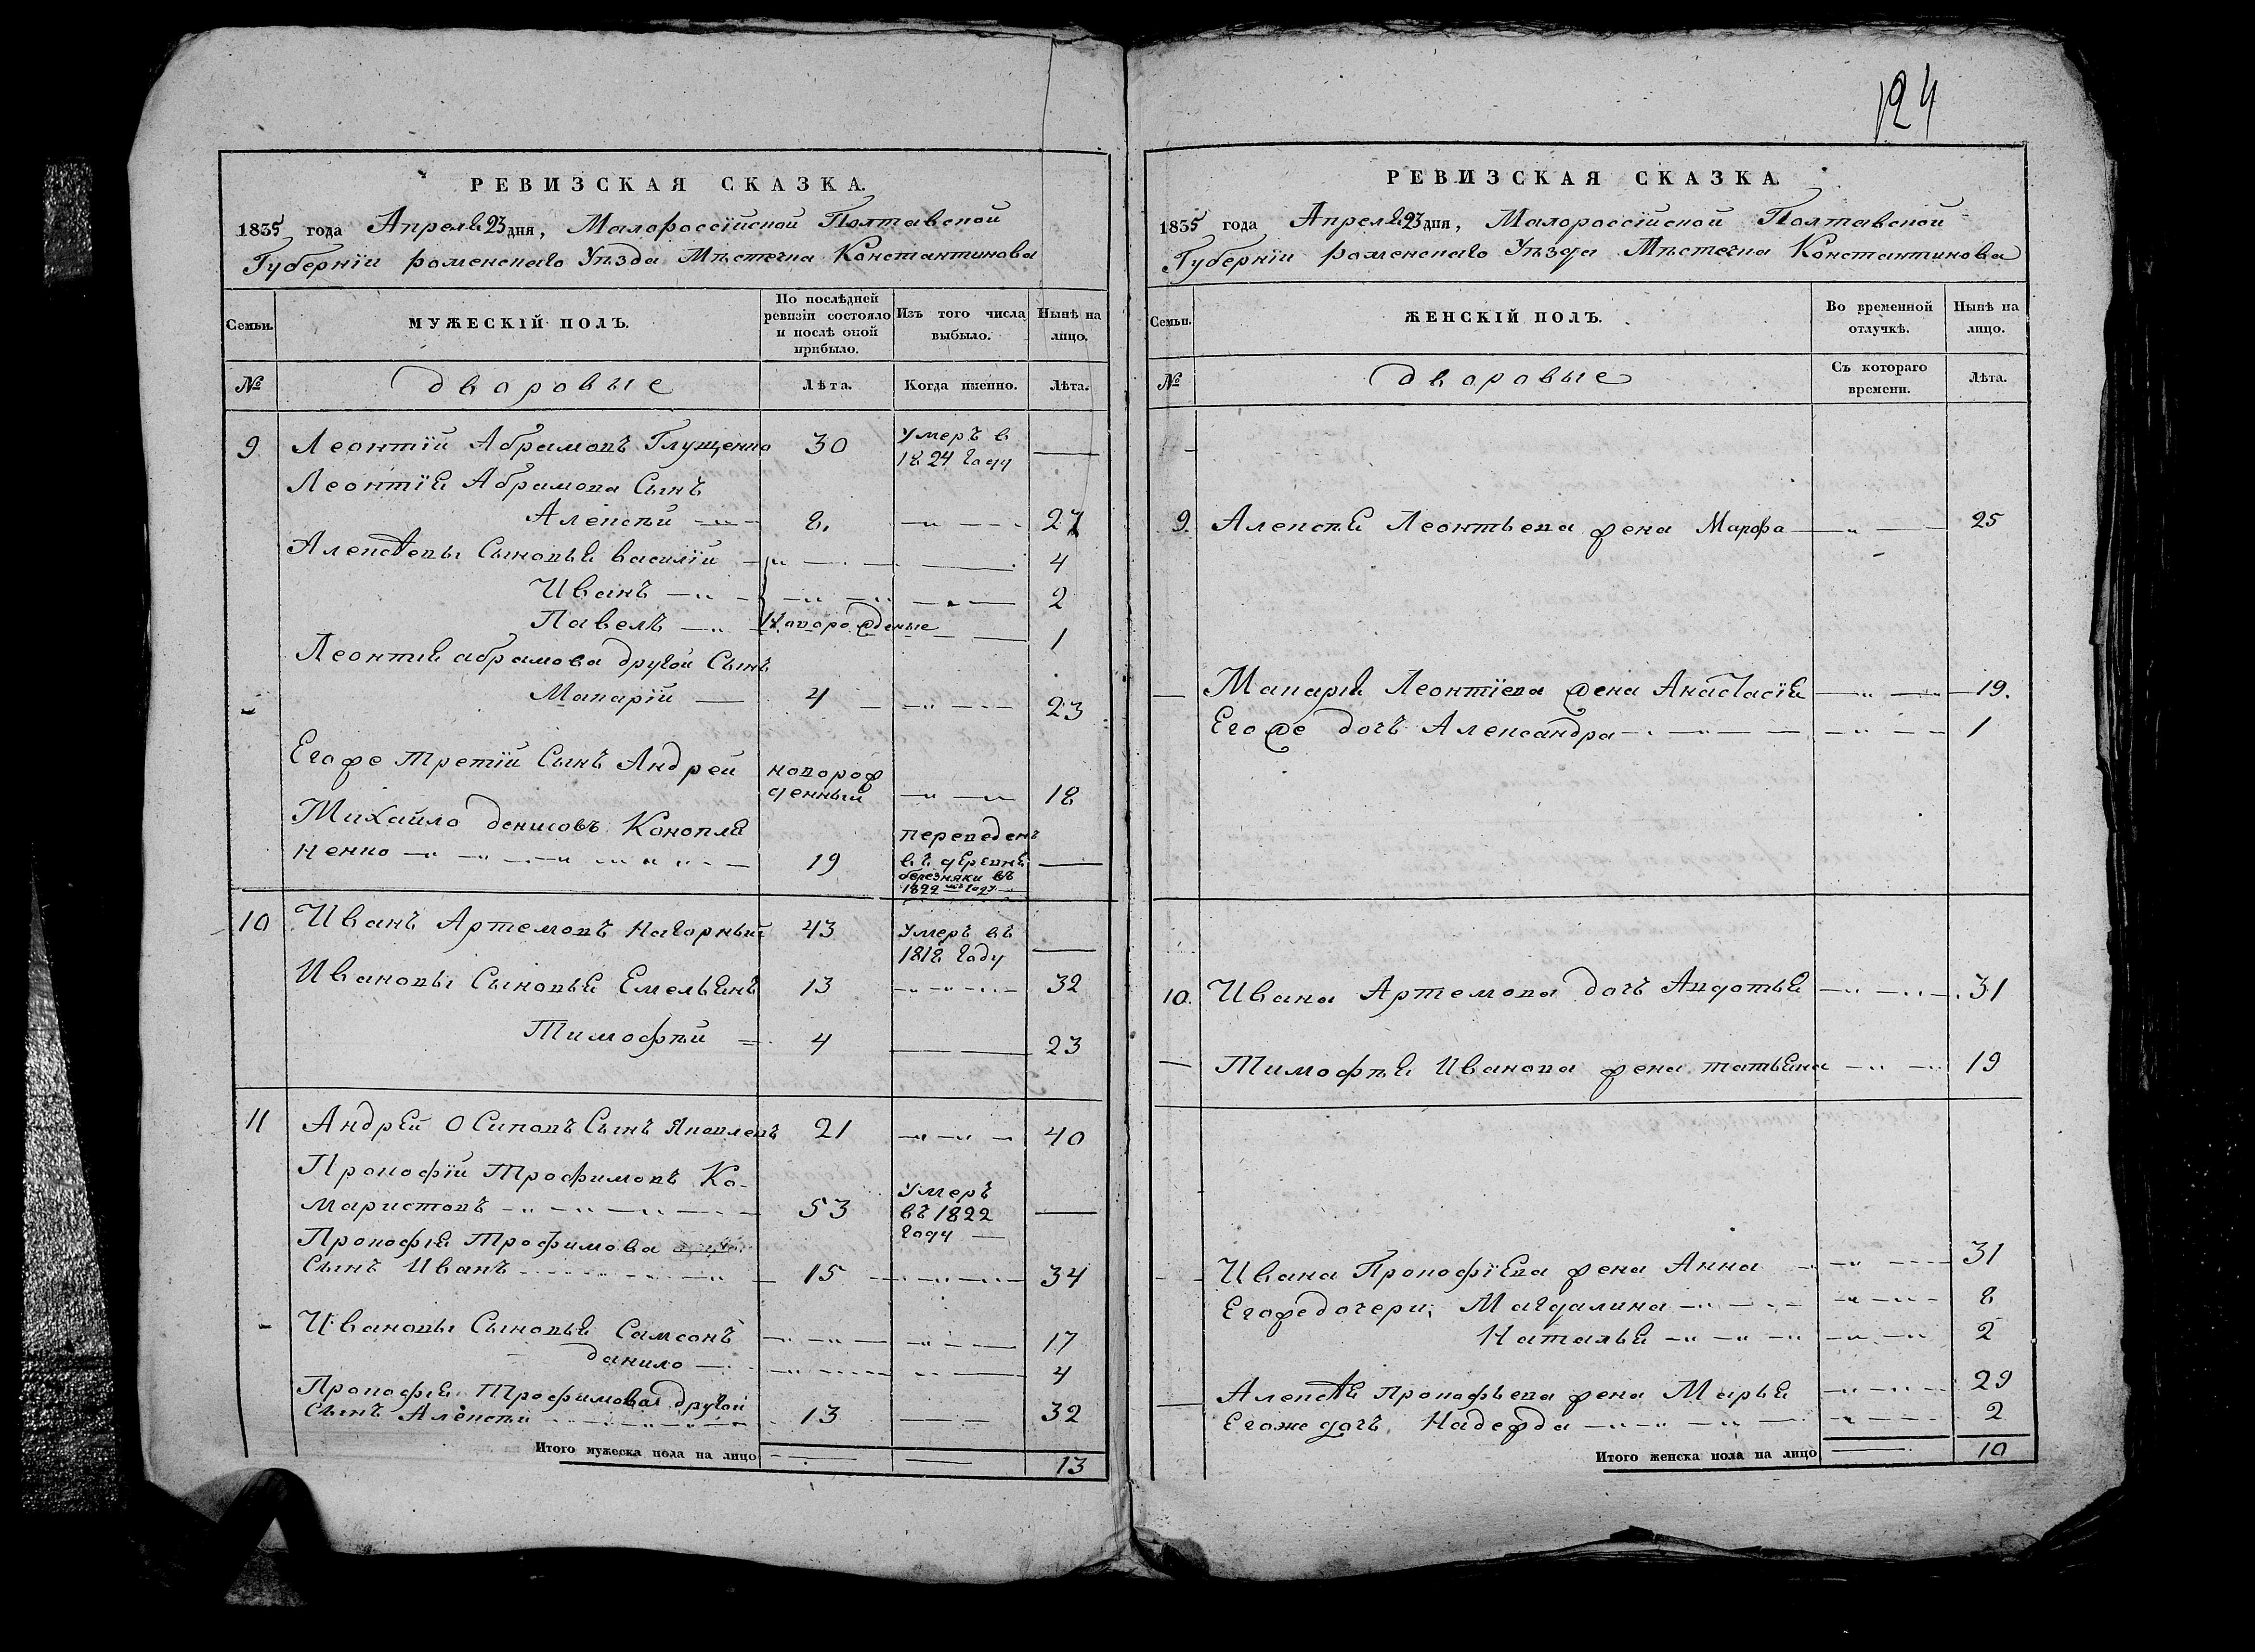 124
РЕВИЗСКАЯ СКАЗКА.
1835 года Апреля 23 дня, Малороссійской Полтавской
Губерніи роменскаго Уѣзда Мѣстечка Константинова
Семьи.
МУЖЕСКІЙ ПОЛЪ.
По послѣдней ревизіи состояло и послѣ оной прибыло.
Изъ того числа выбыло.
Нынѣ на лицо.
№
дворовые
Лѣта.
Когда именно.
Лѣта.
9 Леонтій Абрамовъ Глущенко 30 Умеръ в 1824 году —
Леонтія Абрамова Сынъ
Алексѣй 8. 27
Алексѣевы Сыновья василій 4
Иванъ 2
Павелъ Новорожденые 1
Леонтія абрамова другой Сынъ
Макарій 4 23
Егоже третій Сынъ Андрей новорожденный 18
Михайло денисовъ Конопля
ненко 19 переведенъ въ деревню березняки въ 1822 мъ году —
10 Иванъ Артемовъ Нагорный 43 Умеръ въ 1818 году —
Ивановы Сыновья Емельянъ 13 32
Тимофѣй 4 23
11 Андрей Осиповъ Сынъ Яковлевъ 21 40
Прокофій Трофимовъ Ко-
маристовъ 53 Умеръ въ 1822 году —
Прокофія Трофимова
Сынъ Иванъ 15 34
Ивановы Сыновья Самсонъ 17
данило 4
Прокофія Трофимова другой
Сынъ Алексѣй 13 32
Итого мужеска пола на лицо 13
РЕВИЗСКАЯ СКАЗКА.
1835 года Апреля 23 дня, Малороссійской Полтавской
Губерніи роменскаго Уѣзда Мѣстечка Константинова
Семьи.
ЖЕНСКІЙ ПОЛЪ.
Во временной отлучкѣ.
Нынѣ на лицо.
№
дворовые
Съ котораго времени.
Лѣта.
9. Алексѣя Леонтьева жена Марфа 25
Макарія Леонтіева жена Анастасія 19.
Егоже дочь Александра 1
10. Ивана Артемова дочь Авдотья 31
Тимофѣя Иванова жена татьяна 19
Ивана Прокофіева жена Анна 31
Егоже дочери, Магдалина 8
Наталья 2
Алексѣя Прокофьева жена Марья 29
Егоже дочь, Надежда 2
Итого женска пола на лицо 10